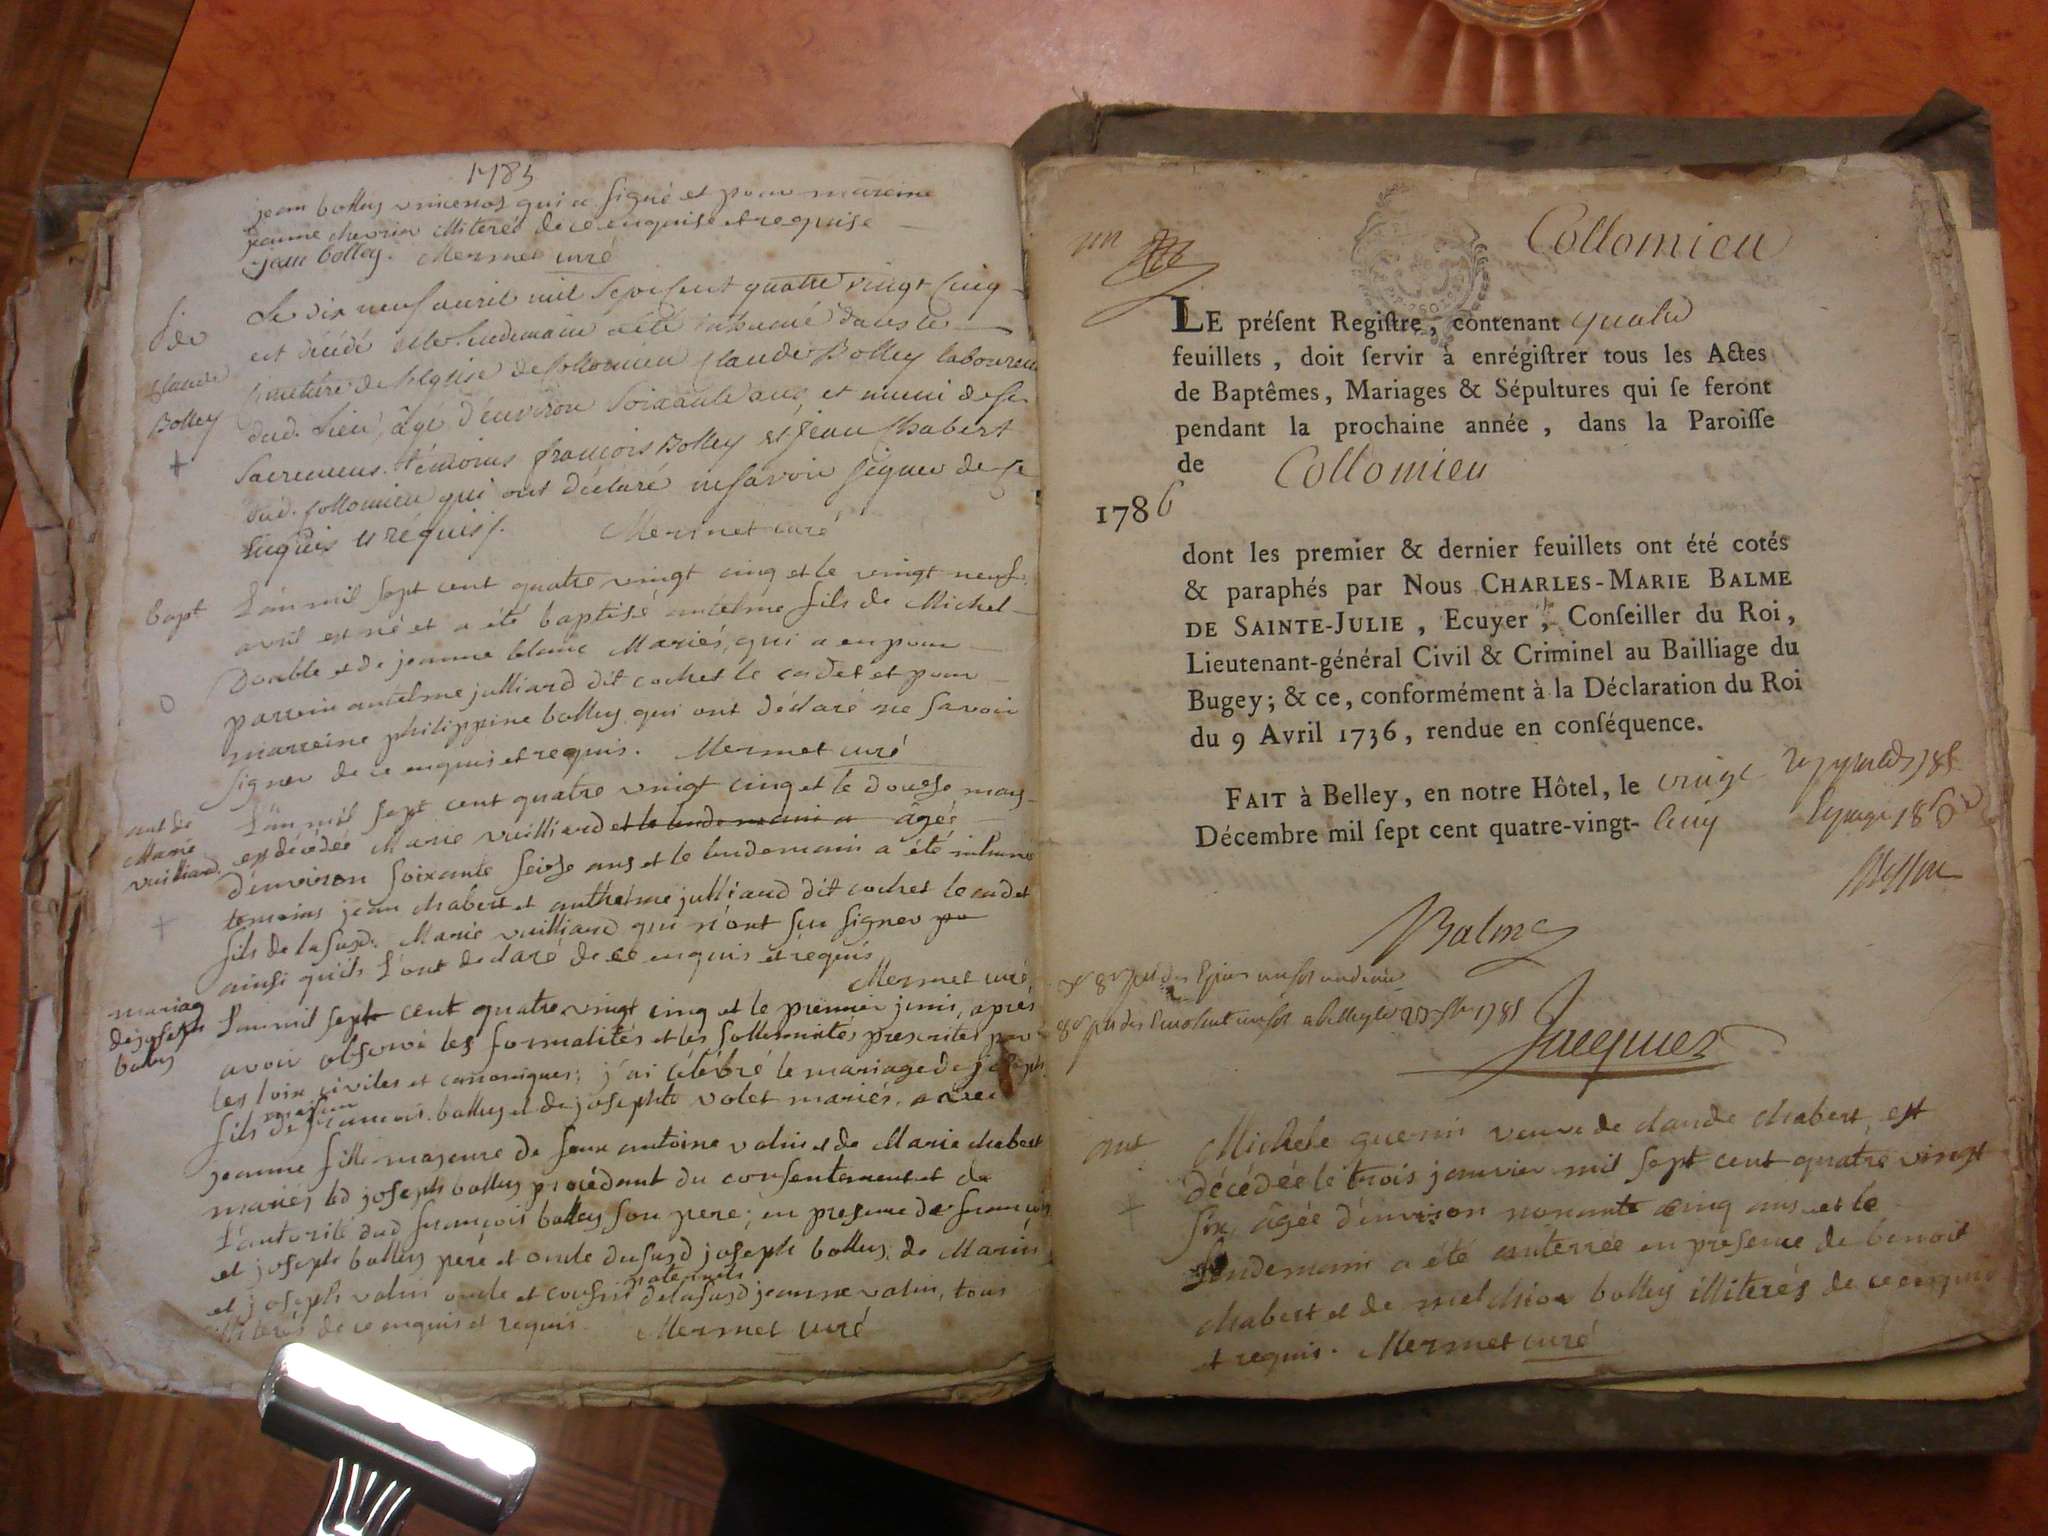 1785
jean bolley vincenot qui a signé et pour mareine
jeanne chevrier illiterée de ce enquise et requise
jean bolley. Mermet curé
Le dix neuf avril mil sept cent quatre vingt cinq
est décédé et le lendemain a été inhumé dans le
cimetiere de l'eglise de Collomieu Claude Bolley laboureur
dud. lieu, âgé d'environ soixante ans, et muni de ses
sacremens. témoins françois Bolley et jean Chabert
dud. Collomieu qui ont déclaré ne savoir signer de ce
enquis et réquis. Mermet curé
Claude
Bolley
+
bapt
L'an mil sept cent quatre vingt cinq et le vingt neuf
avril est né et a été baptisé antelme fils de Michel
Double et de jeanne blanc Mariés, qui a eu pour
parrein antelme julliard dit cochet le cadet et pour
marreine philippine bolley qui ont déclaré ne savoir
signer de ce enquis et requis. Mermet curé
ant de
Marie
vuilliard
+
L'an mil sept cent quatre vingt cinq et le douse mars
est décédée Marie vuilliard et le lendemain a âgée
d'environ soixante seise ans et le lendemain a été inhumé
temoins jean chabert et anthelme julliard dit cochet le cadet
fils de la susd. Marie vuilliard qui n'ont su signer
ainsi qu'ils l'ont declaré de ce enquis et requis
Mermet curé
mariag
de joseph
bolley
L'an mil sept cent quatre vingt cinq et le premier juin, après
avoir observé les formalités et les sollemnités prescrites par
les loix civiles et canoniques; j'ai célébré le mariage de joseph
fils de françois bolley et de josephte volet mariés, avec
jeanne fille majeure de feux antoine valin et de Marie chabert
mariés led joseph bolley procédant du consentement et de
l'autorité dud françois bolley son pere; en presence de françois
et joseph bolley pere et oncle dususd joseph bolley, de Marin
et joseph valin oncle et cousin paternels delasusd jeanne valin, tous
illiterés de ce enquis et requis Mermet curé
un
Collomieu
LE préſent Regiſtre, contenant quatre
feuillets, doit ſervir à enrégiſtrer tous les Actes
de Baptêmes, Mariages & Sépultures qui ſe feront
pendant la prochaine année, dans la Paroiſſe
de Collomieu
1786
dont les premier & dernier feuillets ont été cotés
& paraphés par Nous CHARLES-MARIE BALME
DE SAINTE-JULIE, Ecuyer, Conſeiller du Roi,
Lieutenant-général Civil & Criminel au Bailliage du
Bugey; & ce, conformément à la Déclaration du Roi
du 9 Avril 1736, rendue en conſéquence.
FAIT à Belley, en notre Hôtel, le vingt
Décembre mil ſept cent quatre-vingt- cinq
Balme
Jacquier
ant
+
Michele guerin veuve de claude chabert, est
décédée le trois janvier mil sept cent quatre vingt
six, âgée d'environ nonante cinq ans et le
lendemain a été enterrée en presence de benoit
chabert et de melchior bolley illiterés de ce enquis
et requis. Mermet curé